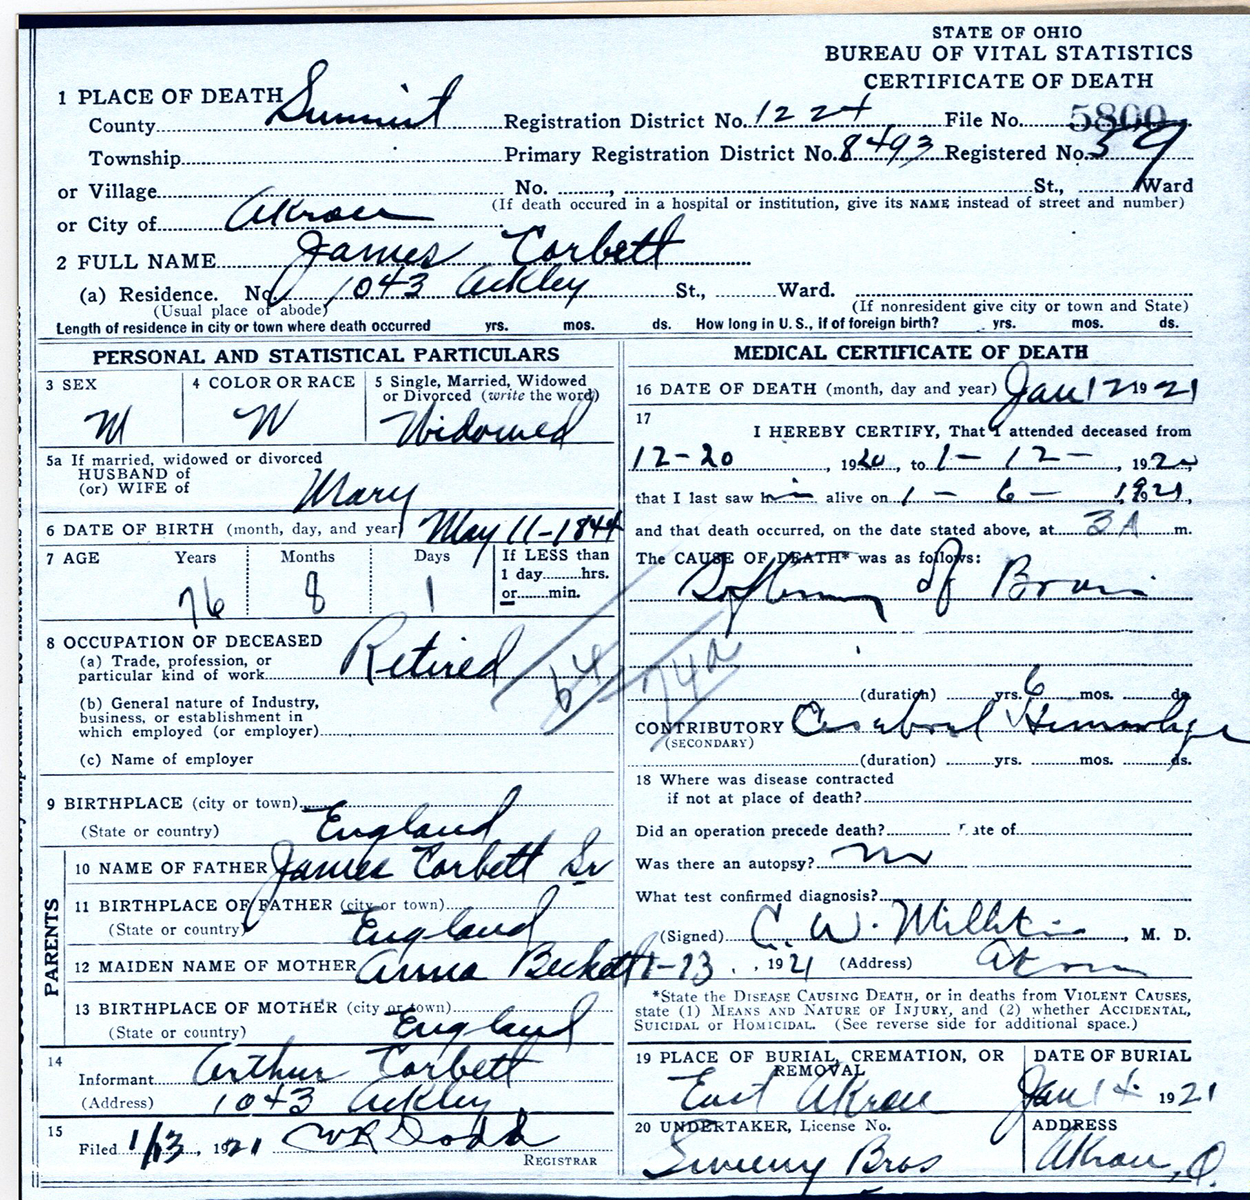 STATE OF OHIO
BUREAU OF VITAL STATISTICS
CERTIFICATE OF DEATH
1 PLACE OF DEATH
County Summit Registration District No. 1224 File No. 5800
Township Primary Registration District No. 8493 Registered No. 59
or Village No. , St., Ward
(If death occured in a hospital or institution, give its NAME instead of street and number)
or City of Akron
2 FULL NAME James Corbett
(a) Residence. No. 1043 Ackley St., Ward.
(Usual place of abode) (If nonresident give city or town and State)
Length of residence in city or town where death occurred yrs. mos. ds. How long in U. S., if of foreign birth? yrs. mos. ds.
PERSONAL AND STATISTICAL PARTICULARS
3 SEX 4 COLOR OR RACE 5 Single, Married, Widowed
or Divorced (write the word)
M W Widowed
5a If married, widowed or divorced
HUSBAND of
(or) WIFE of Mary
6 DATE OF BIRTH (month, day, and year) May 11-1844
7 AGE Years Months Days If LESS than
1 day hrs.
or min.
76 8 1
8 OCCUPATION OF DECEASED
(a) Trade, profession, or
particular kind of work Retired
(b) General nature of Industry,
business, or establishment in
which employed (or employer)
(c) Name of employer
9 BIRTHPLACE (city or town)
(State or country) England
PARENTS
10 NAME OF FATHER James Corbett Sr
11 BIRTHPLACE OF FATHER (city or town)
(State or country) England
12 MAIDEN NAME OF MOTHER Anna Beckett
13 BIRTHPLACE OF MOTHER (city or town)
(State or country) England
14
Informant Arthur Corbett
(Address) 1043 Ackley
15
Filed 1/13, 1921 WR Dodd
REGISTRAR
64 74a
MEDICAL CERTIFICATE OF DEATH
16 DATE OF DEATH (month, day and year) Jan 12 1921
17
I HEREBY CERTIFY, That I attended deceased from
12-20, 1920, to 1-12-, 1920,
that I last saw him alive on 1-6-, 1921,
and that death occurred, on the date stated above, at 3A m.
The CAUSE OF DEATH* was as follows:
Softening of Brain
(duration) yrs. 6 mos. ds.
CONTRIBUTORY Cerebral Hemorrhage
(SECONDARY)
(duration) yrs. mos. ds.
18 Where was disease contracted
if not at place of death?
Did an operation precede death? Date of
Was there an autopsy? no
What test confirmed diagnosis?
(Signed) C. W. Millikin, M. D.
1-13, 1921 (Address) Akron
*State the DISEASE CAUSING DEATH, or in deaths from VIOLENT CAUSES,
state (1) MEANS AND NATURE OF INJURY, and (2) whether ACCIDENTAL,
SUICIDAL or HOMICIDAL. (See reverse side for additional space.)
19 PLACE OF BURIAL, CREMATION, OR
REMOVAL
East Akron
DATE OF BURIAL
Jan 14 1921
20 UNDERTAKER, License No.
Sweeny Bros
ADDRESS
Akron, O.